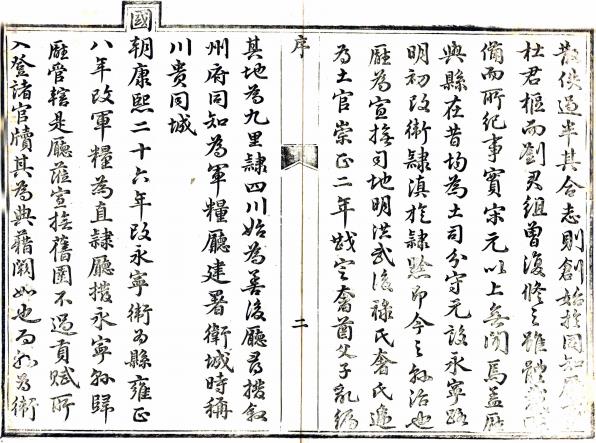 散佚過半其合志則創始於同知
杜君樞而劉君組曾復修之雖體
備而所紀事實宋元以上無聞焉蓋
與縣在昔均為土司分守元設永寧路
明初改衛隸滇旋隸黔即今之縣治也
廳為宣撫司地明洪武後祿氏奢氏遞
為土官崇正二年戡定奢酋父子亂編
序
二
其地為九里隸四川始為善後廳尋撥敘
州府同知為軍糧廳建署衛城時稱
川貴同城
國朝康熙二十六年改永寧衛為縣雍正
八年改軍糧為直隸廳撥永寧縣歸
廳管轄是廳蓋宣撫舊圉不過貢賦所
入登諸官牘其為典藉闕如也而縣為衛